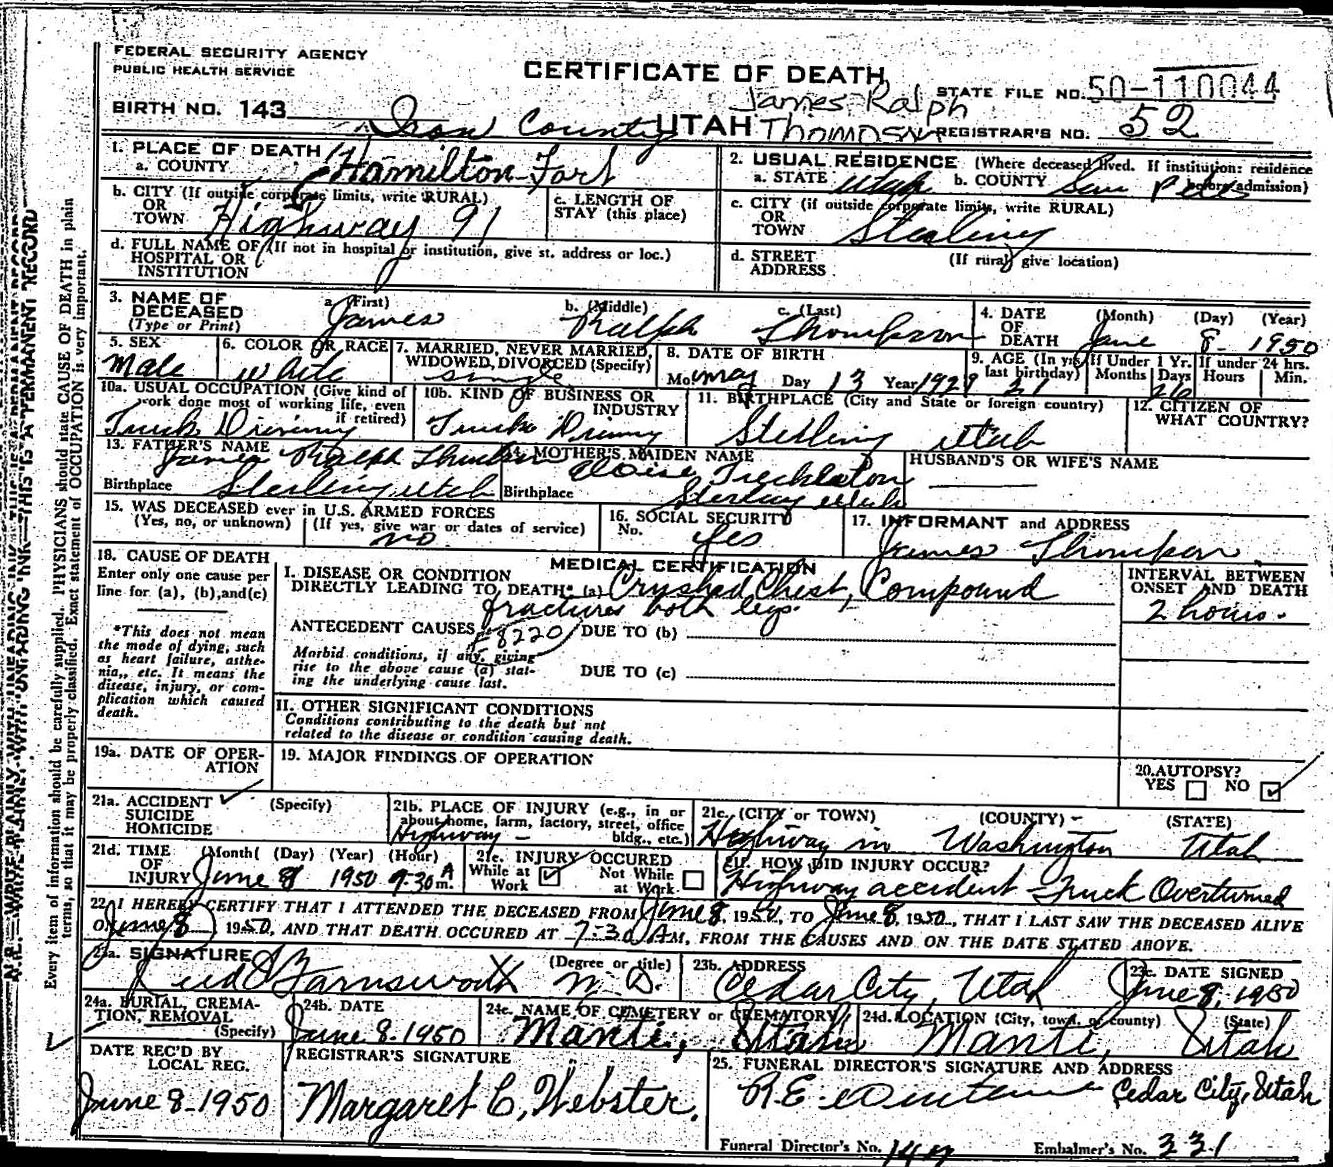 FEDERAL SECURITY AGENCY
PUBLIC HEALTH SERVICE
CERTIFICATE OF DEATH
STATE FILE NO. 50-110044
BIRTH NO. 143
James Ralph
Iron County UTAH Thompson REGISTRAR'S NO. 52
1. PLACE OF DEATH
a. COUNTY Hamilton Fort
2. USUAL RESIDENCE (Where deceased lived. If institution: residence before admission)
a. STATE Utah b. COUNTY San Pete
b. CITY (If outside corporate limits, write RURAL)
OR
TOWN Highway 91
c. LENGTH OF
STAY (this place)
c. CITY (if outside corporate limits, write RURAL)
OR
TOWN Sterling
d. FULL NAME OF (If not in hospital or institution, give st. address or loc.)
HOSPITAL OR
INSTITUTION
d. STREET (If rural, give location)
ADDRESS
3. NAME OF a. (First) b. (Middle) c. (Last)
DECEASED
(Type or Print) James Ralph Thompson
4. DATE (Month) (Day) (Year)
OF
DEATH June 8- 1950
5. SEX
Male
6. COLOR OR RACE
white
7. MARRIED, NEVER MARRIED,
WIDOWED, DIVORCED (Specify)
single
8. DATE OF BIRTH
Mo. May Day 13 Year 1929
9. AGE (In yrs last birthday) 21
If Under 1 Yr. Months Days 26
If under 24 hrs. Hours Min.
10a. USUAL OCCUPATION (Give kind of
work done most of working life, even
if retired)
Truck Driving
10b. KIND OF BUSINESS OR
INDUSTRY
Truck Driving
11. BIRTHPLACE (City and State or foreign country)
Sterling Utah
12. CITIZEN OF
WHAT COUNTRY?
13. FATHER'S NAME
James Ralph
Birthplace Sterling Utah
14. MOTHER'S MAIDEN NAME
Birthplace Sterling Utah
HUSBAND'S OR WIFE'S NAME
15. WAS DECEASED ever in U.S. ARMED FORCES
(Yes, no, or unknown) (If yes, give war or dates of service)
no
16. SOCIAL SECURITY
No. yes
17. INFORMANT and ADDRESS
James Thompson
18. CAUSE OF DEATH
Enter only one cause per
line for (a), (b), and(c)
*This does not mean
the mode of dying, such
as heart failure, asthe-
nia,, etc. It means the
disease, injury, or com-
plication which caused
death.
MEDICAL CERTIFICATION
I. DISEASE OR CONDITION
DIRECTLY LEADING TO DEATH* (a) Crushed Chest, Compound
fractures both legs.
ANTECEDENT CAUSES E8220 DUE TO (b)
Morbid conditions, if any, giving
rise to the above cause (a) stat-
ing the underlying cause last.
DUE TO (c)
INTERVAL BETWEEN
ONSET AND DEATH
2 hours.
II. OTHER SIGNIFICANT CONDITIONS
Conditions contributing to the death but not
related to the disease or condition causing death.
19a. DATE OF OPER-
ATION
19. MAJOR FINDINGS OF OPERATION
20. AUTOPSY?
YES NO ✓
21a. ACCIDENT ✓ (Specify)
SUICIDE
HOMICIDE
21b. PLACE OF INJURY (e.g., in or
about home, farm, factory, street, office
bldg., etc.)
Highway -
21c. (CITY or TOWN) (COUNTY) - (STATE)
Highway in Washington Utah
21d. TIME (Month( (Day) (Year) (Hour)
OF
INJURY June 8 1950 9:30 A m.
21e. INJURY OCCURED
While at Work ✓ Not While at Work
21f. HOW DID INJURY OCCUR?
Highway accident - Truck Overturned
22. I HEREBY CERTIFY THAT I ATTENDED THE DECEASED FROM June 8, 1950, TO June 8, 1950, THAT I LAST SAW THE DECEASED ALIVE
ON June 8 1950, AND THAT DEATH OCCURED AT 7:30 AM, FROM THE CAUSES AND ON THE DATE STATED ABOVE.
23a. SIGNATURE (Degree or title)
Farnsworth M.D.
23b. ADDRESS
Cedar City, Utah
23c. DATE SIGNED
June 8, 1950
24a. BURIAL, CREMA-
TION, REMOVAL
(Specify)
24b. DATE
June 8-1950
24c. NAME OF CEMETERY or CREMATORY
Manti, Utah
24d. LOCATION (City, town, or county) (State)
Manti, Utah
DATE REC'D BY
LOCAL REG.
June 8-1950
REGISTRAR'S SIGNATURE
Margaret C. Webster.
25. FUNERAL DIRECTOR'S SIGNATURE AND ADDRESS
R.E. Cedar City, Utah
Funeral Director's No.
Embalmer's No. 331
N.B. WRITE PLAINLY WITH UNFADING INK—THIS IS A PERMANENT RECORD
Every item of information should be carefully supplied. PHYSICIANS should state CAUSE OF DEATH in plain
terms, so that it may be properly classified. Exact statement of OCCUPATION is very important.